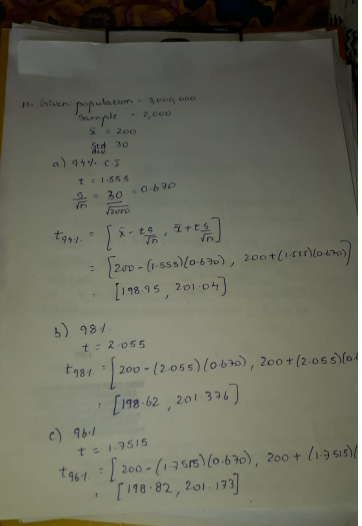 Given population = 3,000,000
Sample = 2,000
x̄ = 200
Std div 30
a) 94% C.I
t = 1.555
s/√n = 30/√2000 = 0.670
t94% = [x̄ - t s/√n , x̄ + t s/√n]
= [200 - (1.555)(0.670) , 200 + (1.555)(0.670)]
= [198.95 , 201.04]
b) 98%
t = 2.055
t98% = [200 - (2.055)(0.670) , 200 + (2.055)(0.6
= [198.62 , 201.376]
c) 96%
t = 1.7515
t96% = [200 - (1.7515)(0.670) , 200 + (1.7515)(
= [198.82 , 201.173]